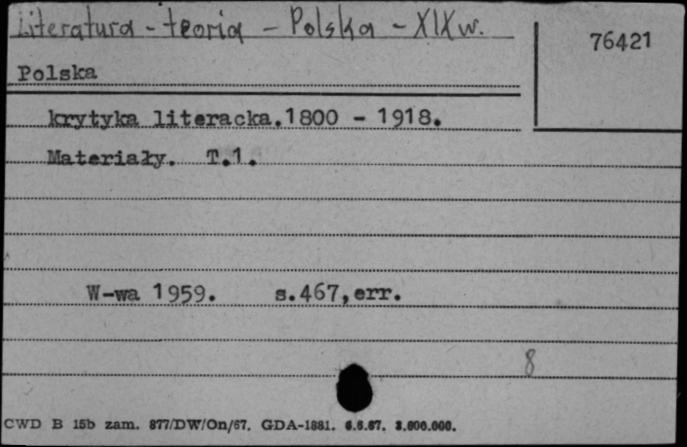 Literatura - teoria - Polska - XIX w.
76421
Polska
krytyka literacka.1800 - 1918.
Materiały. T.1.
W-wa 1959. s.467,err.
8
CWD B 15b zam. 877/DW/On/67. GDA-1881. 6.6.67. 3.000.000.